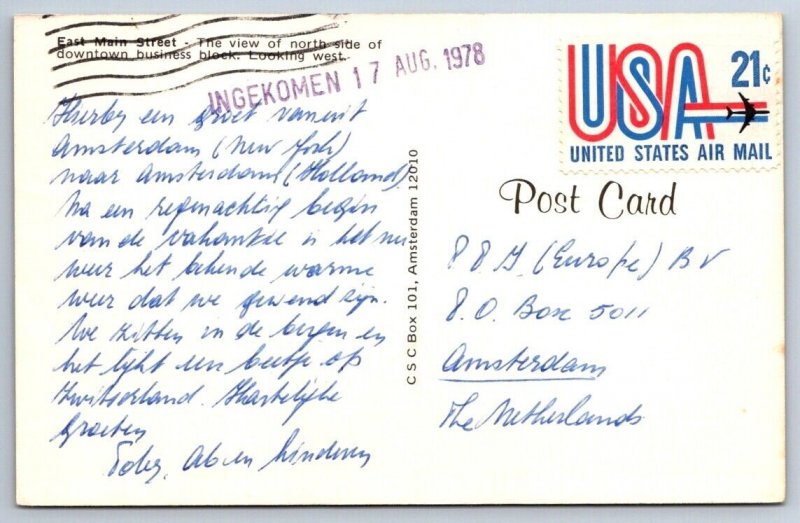 East Main Street - The view of north side of
downtown business block. Looking west.
INGEKOMEN 17 AUG. 1978
USA 21c
UNITED STATES AIR MAIL
Post Card
Hierbij een groet vanuit
Amsterdam (New York)
naar Amsterdam (Holland)
Na een regenachtig begin
van de vakantie is het nu
weer het bekende warme
weer dat we gewend zijn.
We zitten in de bergen en
het lijkt een beetje op
Zwitserland. Hartelijke
Groeten
Ab en kinderen
CSC Box 101, Amsterdam 12010
(Europe) BV
P.O. Box 5011
Amsterdam
The Netherlands